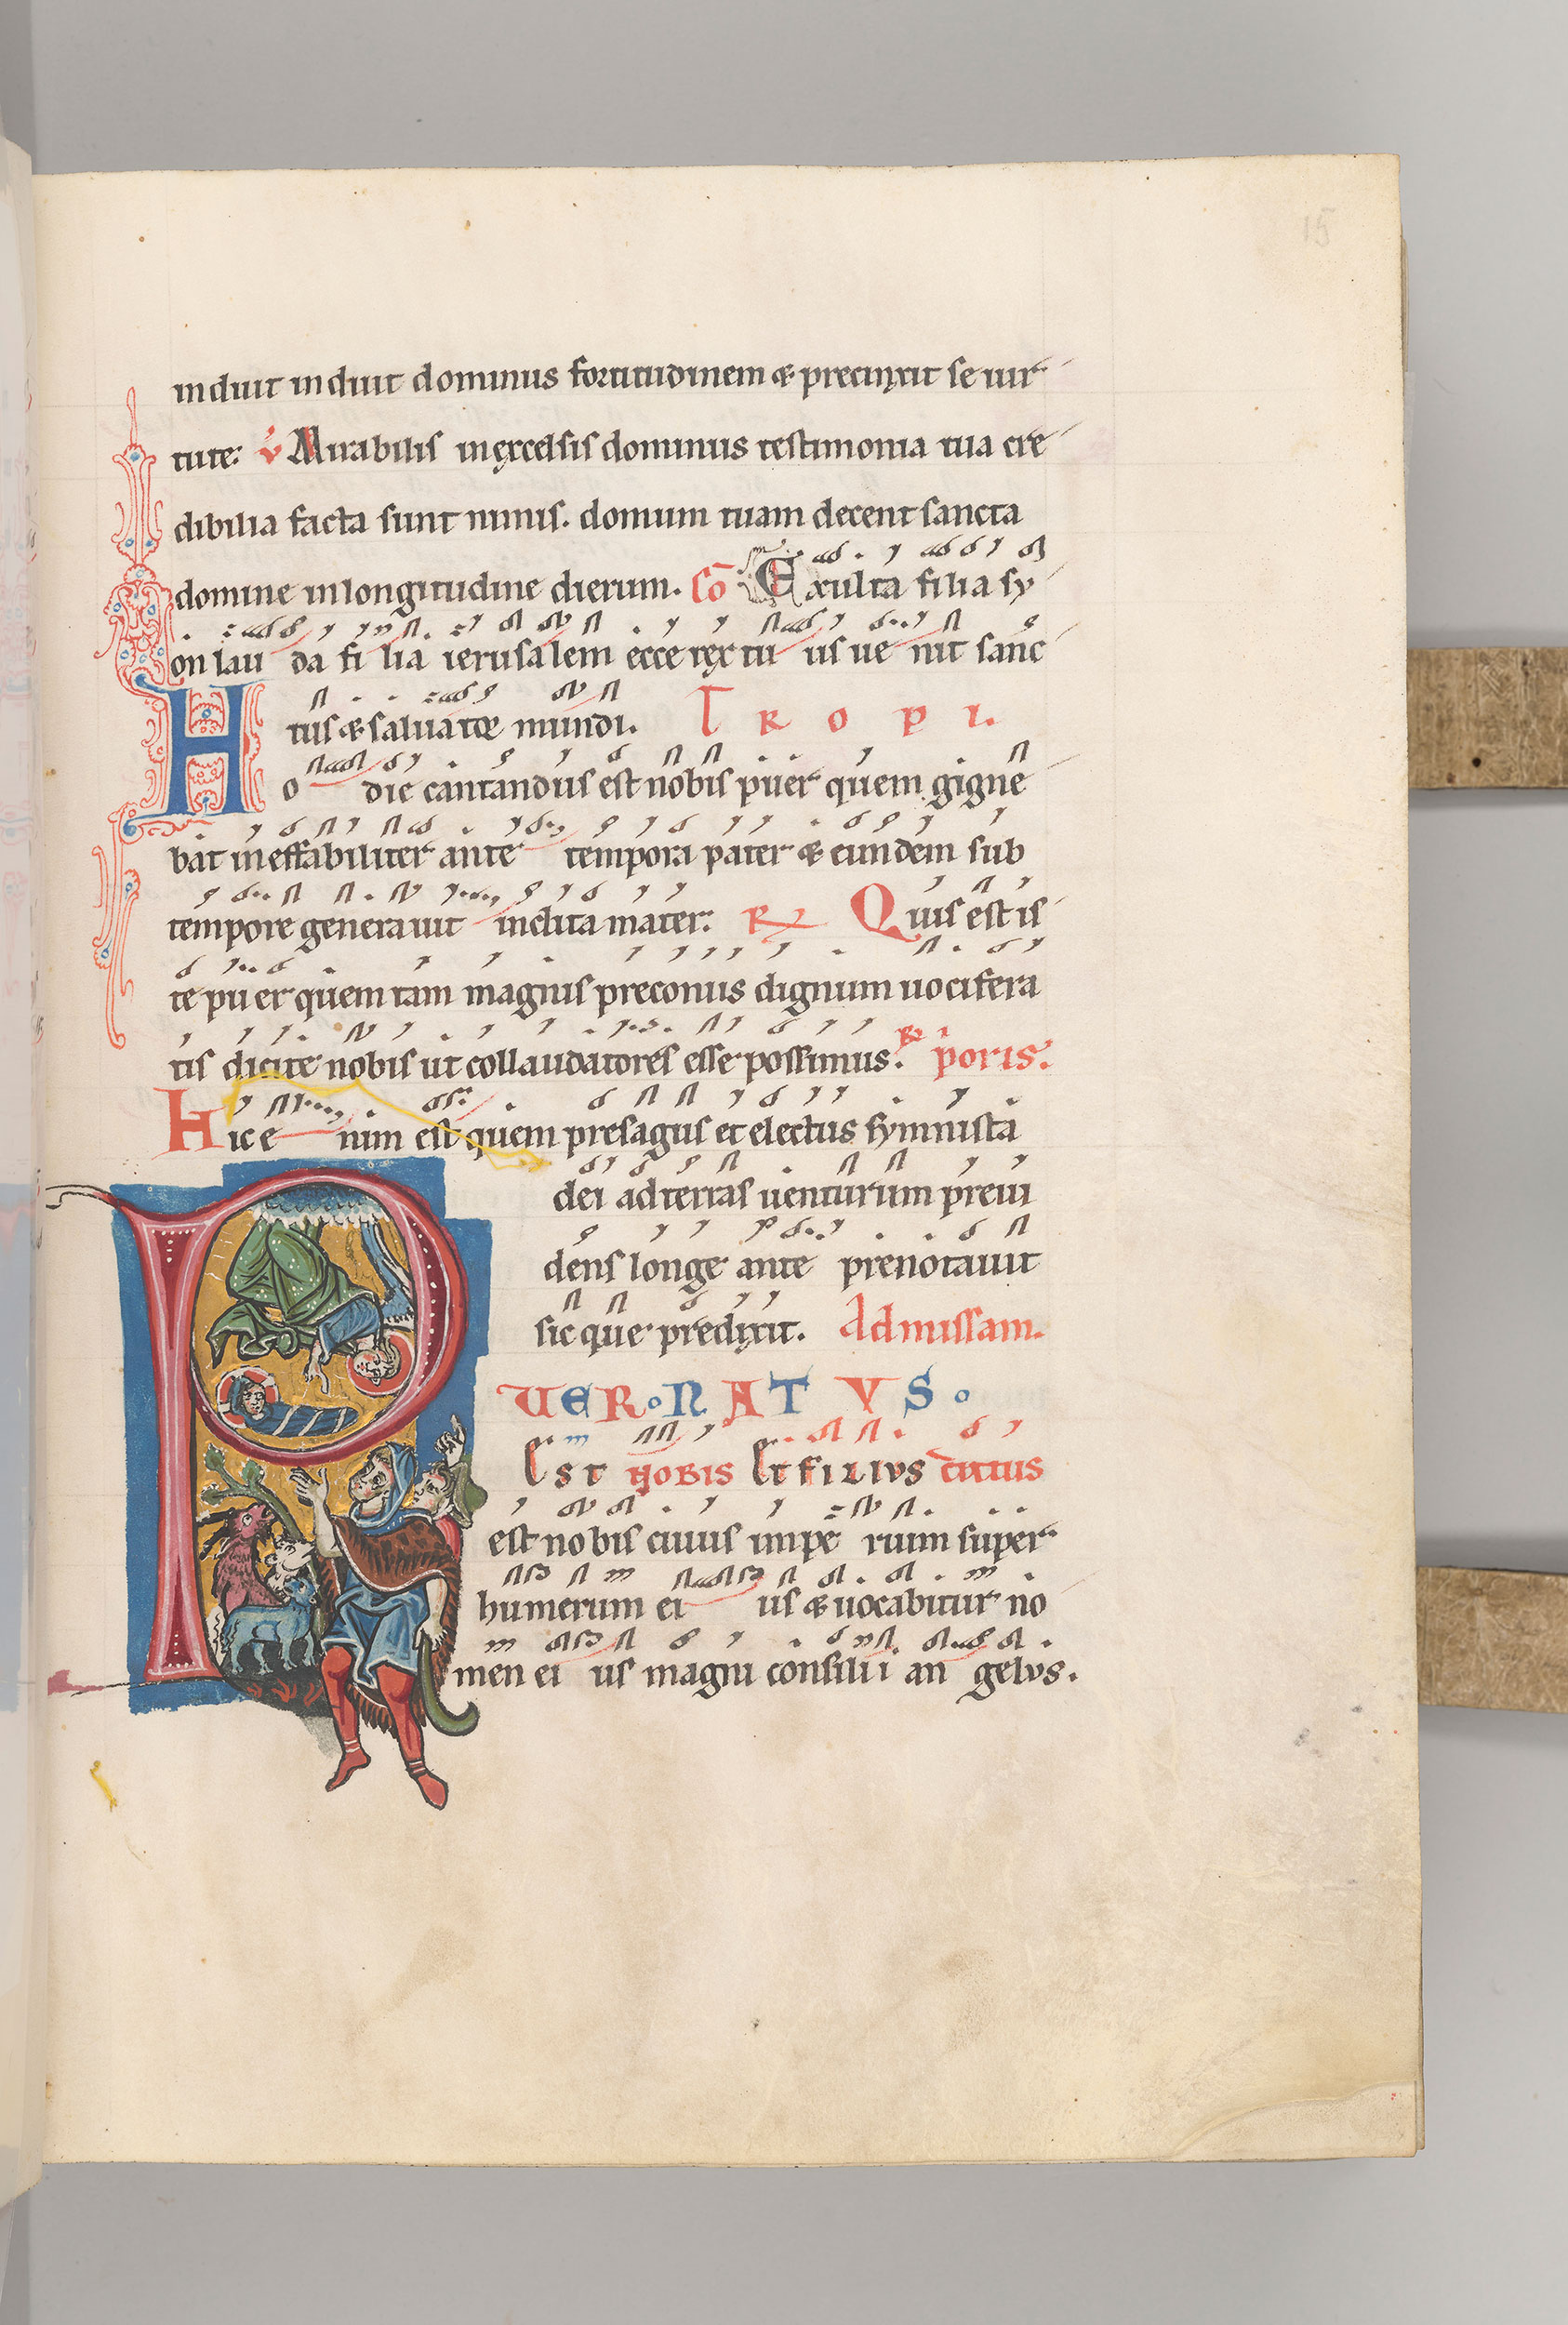 15
induit induit dominus fortitudinem & precinxit se uir
tute: v Mirabilis inexcelsis dominus testimonia tua cre
dibilia facta sunt nimis. domum tuam decent sancta
domine inlongitudine dierum. Co Exulta filia sy
on lau da fi lia ierusalem ecce rex tu us ue nit sanc
tus & saluator mundi. TROPI.
Ho die cantandus est nobis puer quem gigne
bat ineffabiliter ante tempora pater & eundem sub
tempore generauit inclita mater: R Quis est is
te puer quem tam magnis preconiis dignum uocifera
tis dicite nobis ut collaudatores esse possimus. R poris.
Hic e nim est quem presagus et electus symnista
dei adterras uenturum preui
dens longe ante prenotauit
sic que predixit. Admissam.
PUER NATUS
Est NOBIS Et FILIVS datus
est nobis cuius impe rium super
humerum ei us & uocabitur no
men ei us magni consilii an gelvs.